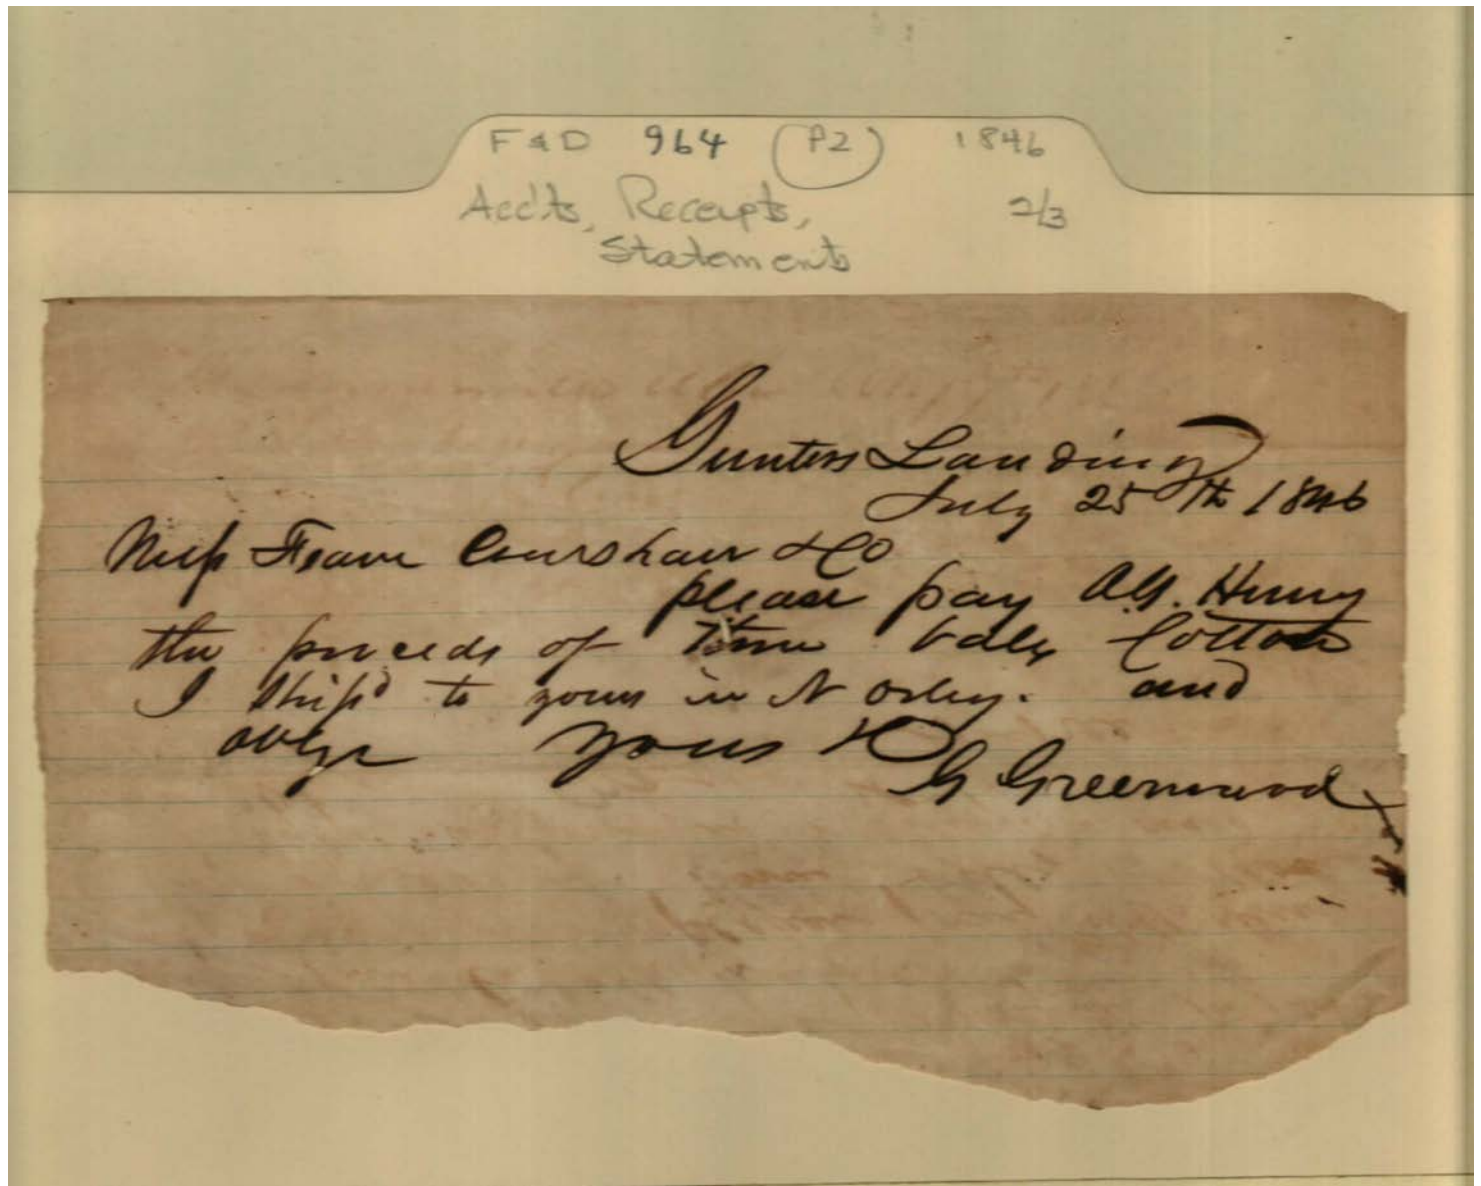 F & D 964 (P2) 1846
Acc'ts, Receipts, 2/3
Statements
Gunters Landing
July 25th 1846
Mess Fearn & Co
please pay A.G. Henry
the proceeds of bales Cotton
I ship'd to yous in N and
oblge yours &c
G Greenwood